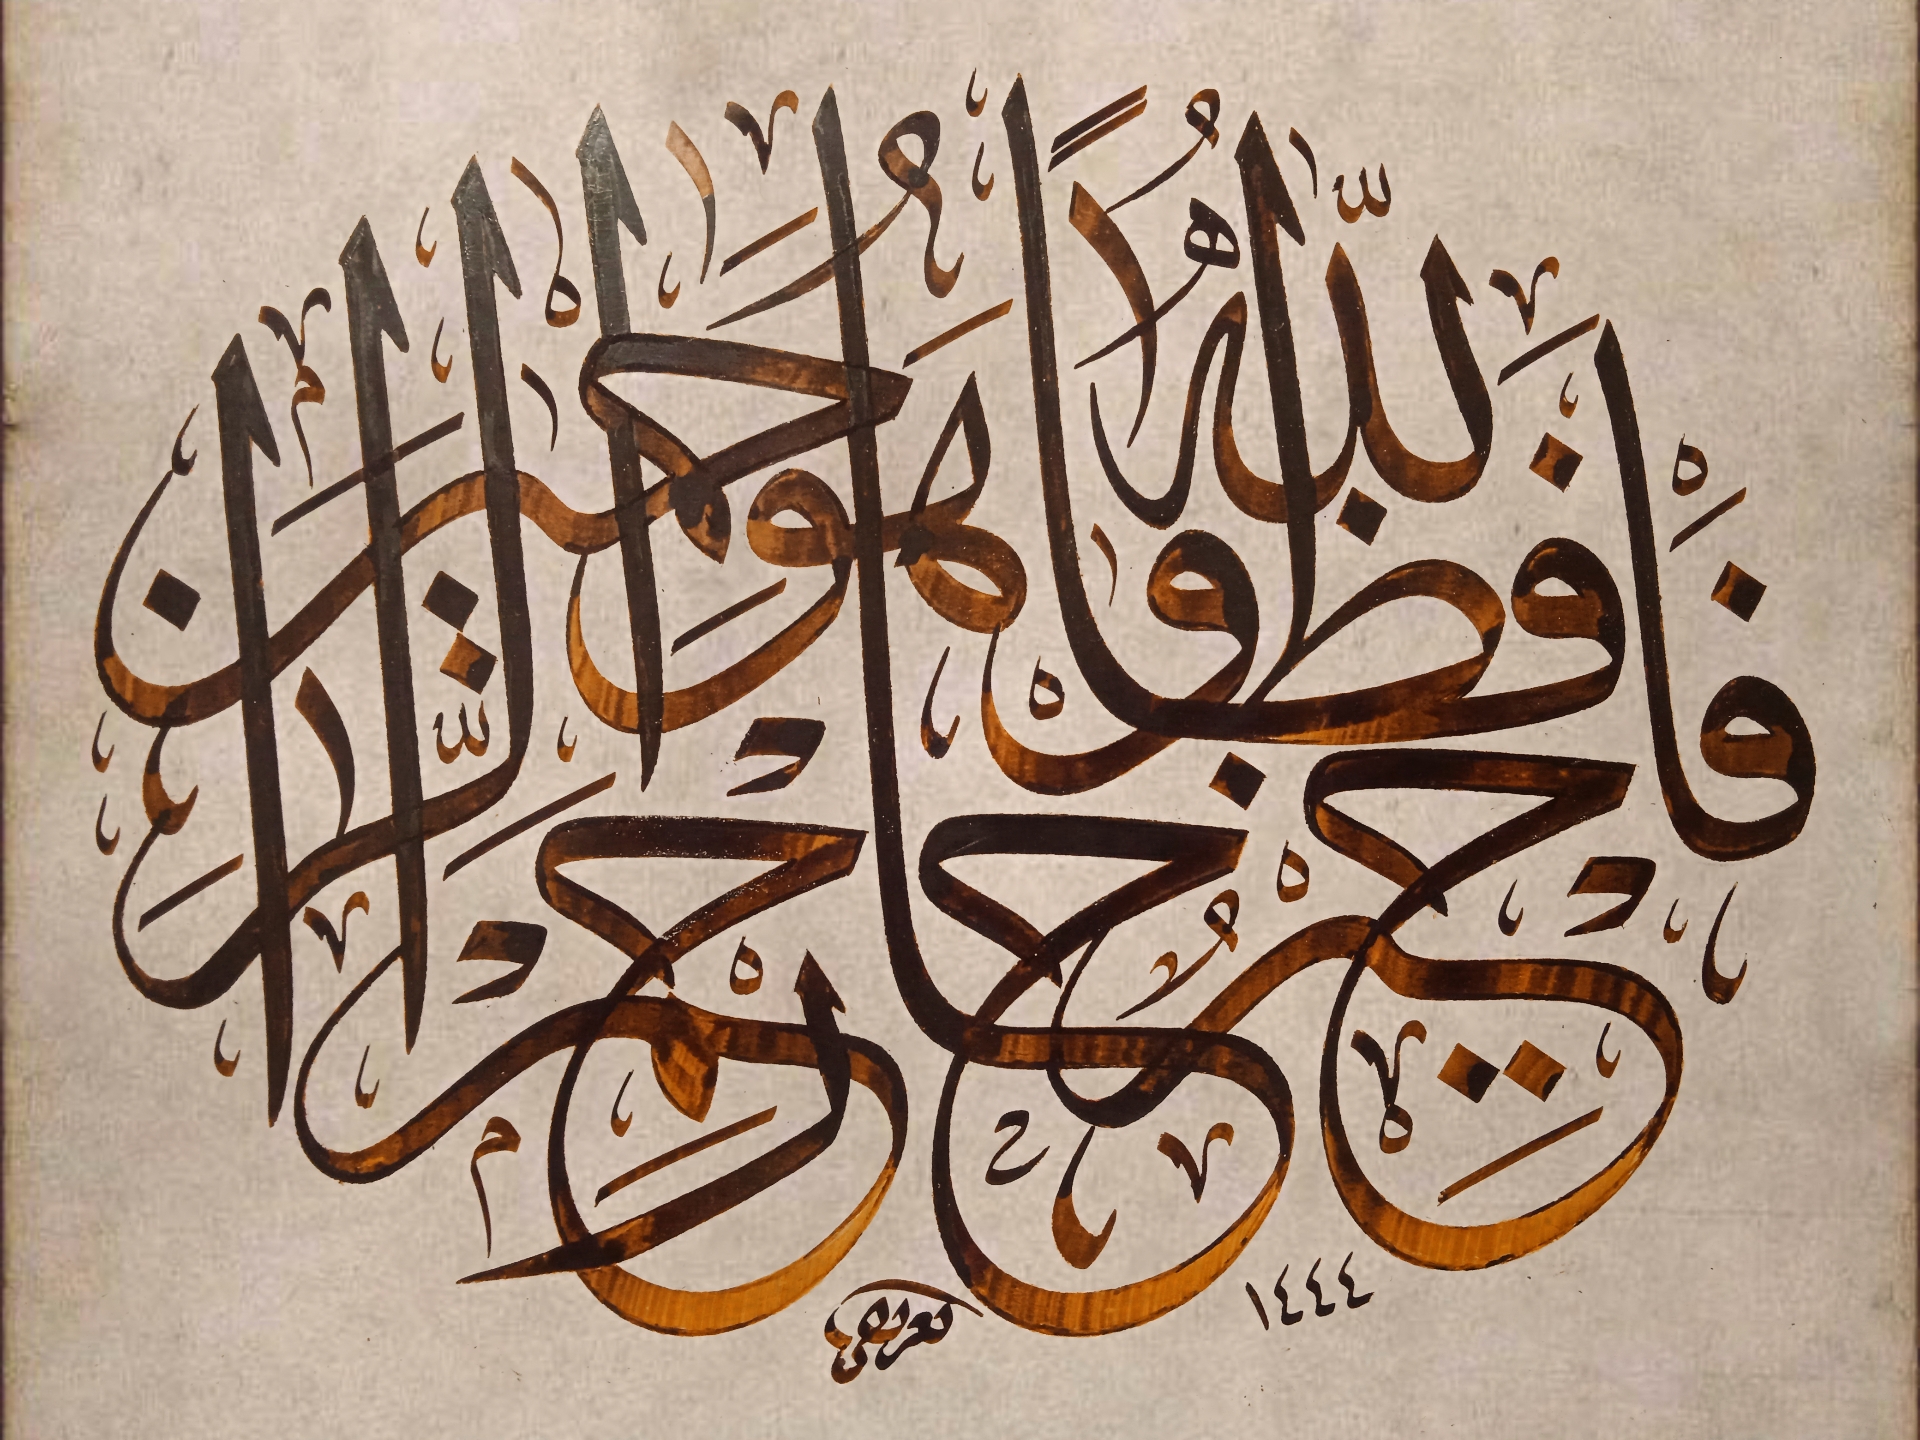 فَاللّٰهُ خَيْرٌ حَافِظًا وَهُوَ أَرْحَمُ الرَّاحِمِينَ
١٤٤٤